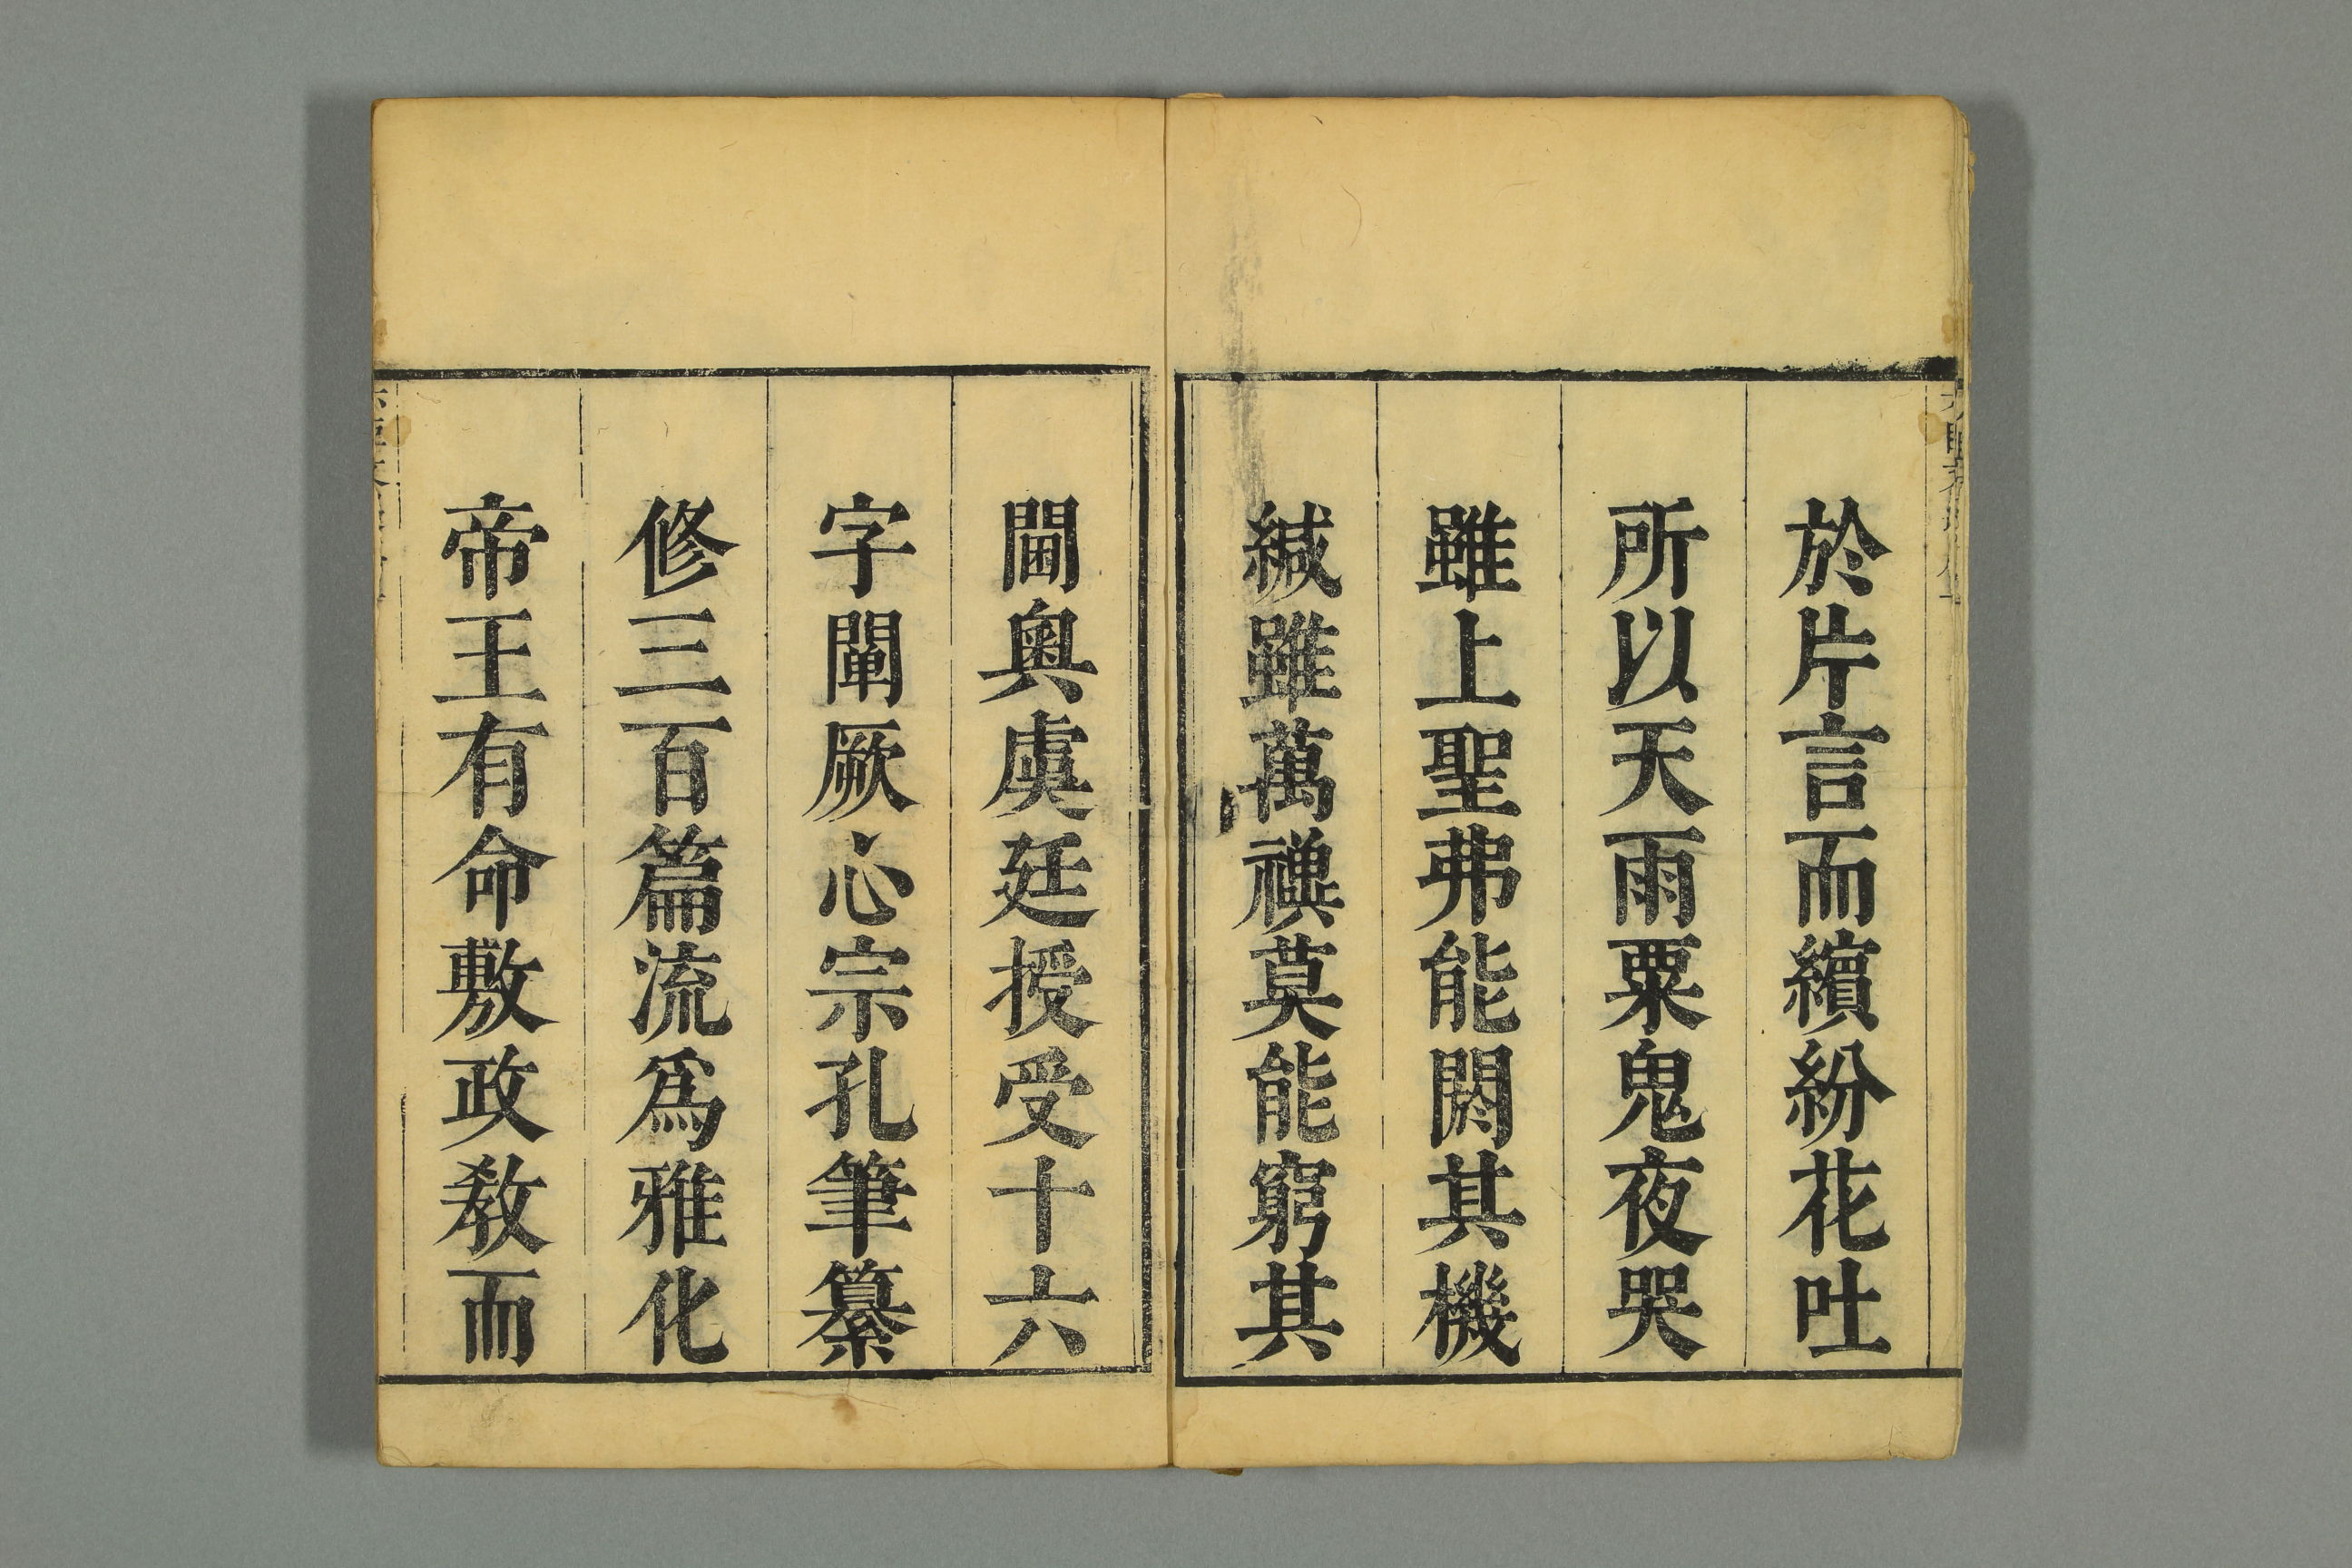 於片言而繽紛花吐
所以天雨粟鬼夜哭
雖上聖弗能閟其機
緘雖萬禩莫能窮其
閫奥虞廷授受十六
字闡厥心宗孔筆纂
修三百篇流爲雅化
帝王有命敷政教而